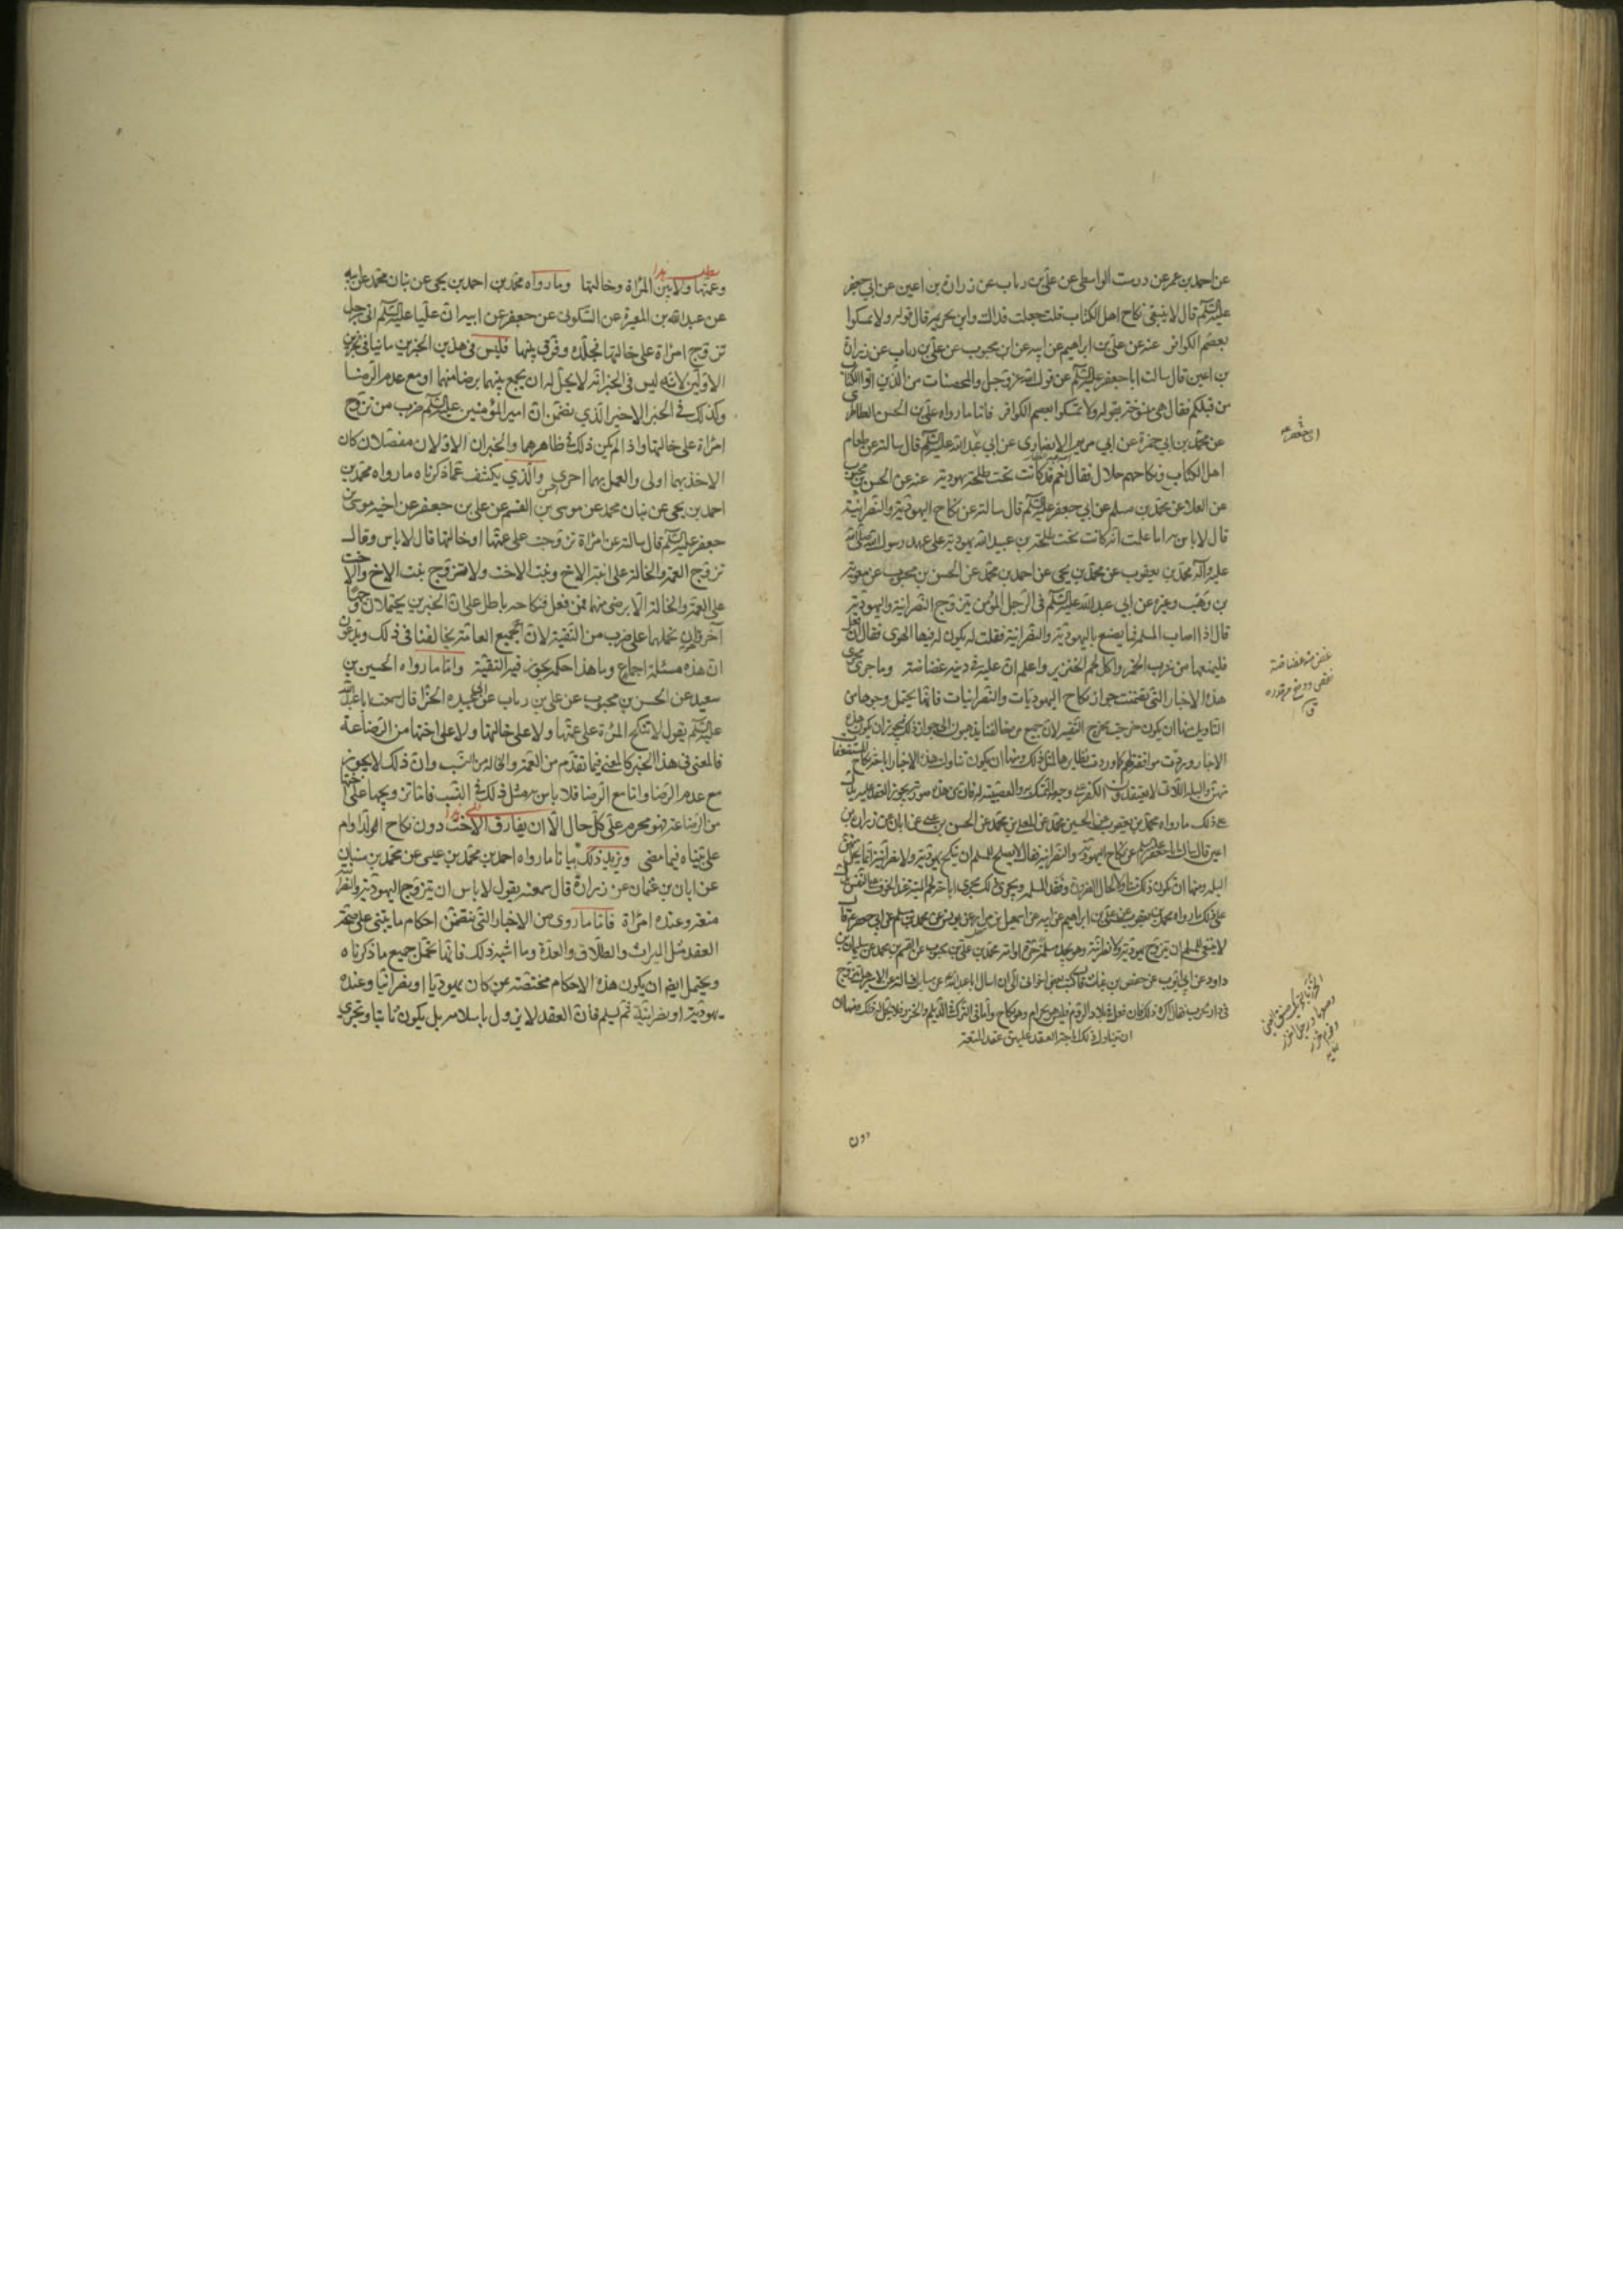 عن احمد بن عمر عن درست الواسطى عن على بن رياب عن زرارة بن اعين عن ابى جعفر
عليه السلم قال لا ينبغى نكاح اهل الكتاب قلت جعلت فداك واين تحريمه قال قوله ولا تمسكوا
بعصم الكوافر عنه عن على بن ابراهيم عن ابيه عن ابن محبوب عن على بن رياب عن زرارة
بن اعين قال سالت ابا جعفر عليه السلم عن قول الله عز وجل والمحصنات من الذين اوتوا الكتاب
من قبلكم فقال هى منسوخة بقوله ولا تمسكوا بعصم الكوافر فاما ما رواه على بن الحسن الطاطرى
عن محمد بن ابى حمزة عن ابى مريم الانصارى عن ابى عبد الله عليه السلم قال سالته عن طعام
اهل الكتاب ونكاحهم حلال فقال نعم قد كانت تحت طلحة يهودية عنه عن الحسن بن محبوب
عن العلا عن محمد بن مسلم عن ابى جعفر عليه السلم قال سالته عن نكاح اليهودية والنصرانية
قال لا باس به اما علمت انه كانت تحت طلحة بن عبيد الله يهودية على عهد رسول الله صلى الله
عليه وآله محمد بن يعقوب عن محمد بن يحيى عن احمد بن محمد عن الحسن بن محبوب عن معوية
بن وهب وغيره عن ابى عبد الله عليه السلم فى الرجل المؤمن يتزوج النصرانية واليهودية
قال اذا اصاب المسلمة فما يصنع باليهودية والنصرانية فقلت له يكون له فيها الهوى فقال ان فعل
فليمنعها من شرب الخمر واكل لحم الخنزير واعلم ان عليه فى دينه غضاضة وما جرى مجرى
هذه الاخبار التى تضمنت جواز نكاح اليهوديات والنصرانيات فانها تحتمل وجوها من
التاويل منها ان يكون خرجت مخرج التقية لان جميع من خالفنا يذهبون الى جواز ذلك فيجوز ان يكون هذه
الاخبار وردت موافقة لهم كما وردت نظايرها لمثل ذلك ومنها ان يكون تناولت هذه الاخبار اباحة نكاح المستضعفات
منهن والبله اللاتى لا يعتقدن الكفر على وجه التمسك به والعصبية له فان من هذه صورته يجوز العقد عليه يدل
على ذلك ما رواه محمد بن يعقوب عن الحسين بن محمد عن المعلى بن محمد عن الحسن بن على عن ابان عن زرارة بن
اعين قال سالت ابا جعفر عليه السلم عن نكاح اليهودية والنصرانية فقال لا يصلح للمسلم ان ينكح يهودية ولا نصرانية انما يحل منهن
البله ومنها ان يكون ذلك متناولا لحال الضرورة وفقد المسلمة ويجرى ذلك مجرى اباحة لحم الميتة عند الخوف على النفس يدل
على ذلك ما رواه محمد بن يعقوب عن على بن ابراهيم عن ابيه عن اسمعيل بن مرار عن يونس عن محمد بن مسلم عن ابى جعفر ع قال
لا ينبغى للمسلم ان يتزوج يهودية ولا نصرانية وهو يجد مسلمة حرة او امة محمد بن على بن محبوب عن القسم بن محمد عن سليمان بن
داود عن ابى ايوب عن حفص بن غياث قال كتب بعض اخوانى الى ان اسال ابا عبد الله ع عن مسايل فسالته عن الاسير هل يتزوج
فى دار الحرب فقال اكره ذلك فان فعل فى بلاد الروم فليس هو بحرام وهو نكاح واما فى الترك والديلم والخزر فلا يحل له ذلك ومنها ان
ان يتناول ذلك اباحة العقد عليهن عقد المتعة
دون
وعمتها ولا بين المراة وخالتها وما رواه محمد بن احمد بن يحيى عن بنان بن محمد عن ابيه
عن عبد الله بن المغيرة عن السكونى عن جعفر عن ابيه ان عليا عليه السلم اتى برجل
تزوج امراة على خالتها فجلده وفرق بينهما فليس فى هذين الخبرين ما ينافى الخبرين
الاولين لانه ليس فى الخبر انه لا يحل له ان يجمع بينهما برضا منهما او مع عدم الرضا
وكذلك فى الخبر الاخير الذى تضمن ان امير المؤمنين عليه السلم ضرب من تزوج
امراة على خالتها واذا لم يكن ذلك فى ظاهرهما والخبران الاولان مفصلان كان
الاخذ بهما اولى والعمل بهما احرى والذى يكشف عما ذكرناه ما رواه محمد بن
احمد بن يحيى عن بنان بن محمد عن موسى بن القسم عن على بن جعفر عن اخيه موسى بن
جعفر عليه السلم قال سالته عن امراة تزوجت على عمتها او خالتها قال لا باس وقال
تزوج العمة والخالة على ابنة الاخ وبنت الاخت ولا تتزوج بنت الاخ والاخت
على العمة والخالة الا برضى منهما فمن فعل فنكاحه باطل على ان الخبرين يحتملان وجها
آخر وهو ان نحملهما على ضرب من التقية لان جميع العامة يخالفنا فى ذلك ويدعون
ان هذه مسئلة اجماع وما هذا حكمه يجوز فيه التقية واما ما رواه الحسين بن
سعيد عن الحسن بن محبوب عن على بن رياب عن ابى عبيدة الحذا قال سمعت ابا عبد الله
عليه السلم يقول لا تنكح المراة على عمتها ولا على خالتها ولا على اختها من الرضاعة
فالمعنى فى هذا الخبر كالمعنى فيما تقدم من العمة والخالة من النسب وان ذلك لا يجوز
مع عدم الرضا واما مع الرضا فلا باس به مثل ذلك فى النسب فاما تزويجها على اختها
من الرضاعة فهو محرم على كل حال الا ان يفارق الاخت دون نكاح الدوام
على بيناه فيما مضى ويزيد ذلك بيانا ما رواه احمد بن محمد بن عيسى عن محمد بن سنان
عن ابان بن عثمان عن زرارة قال سمعته يقول لا باس ان يتزوج اليهودية والنصرانية
متعة وعنده امراة فاما ما روى من الاخبار التى يتضمن احكام ما يبتنى على صحة
العقد مثل الميراث والطلاق والعدة وما اشبه ذلك فانها تحتمل جميع ما ذكرناه
ويحتمل ايضا ان يكون هذه الاحكام مختصة بمن كان يهوديا او نصرانيا وعنده
يهودية او نصرانية ثم يسلم فان العقد لا يزول باسلامه بل يكون ثابتا وتجرى